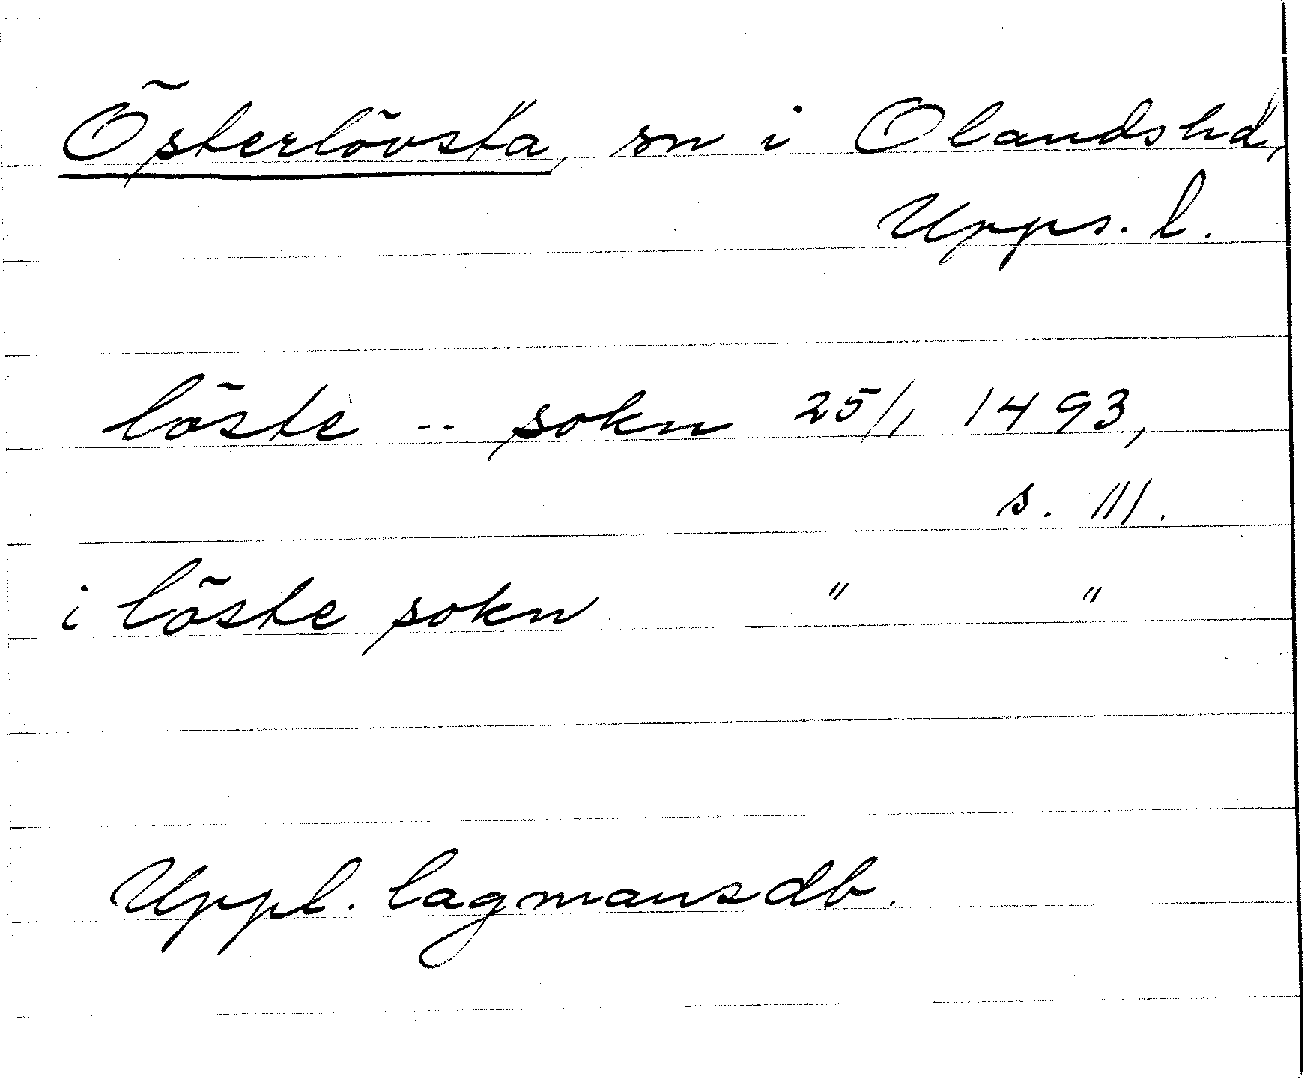 Österlövsta, sn i Olandshd,
Upps. l.
löste .. sokn 25/1 1493,
s. 111.
i löste sokn " "
Uppl. lagmansdb.